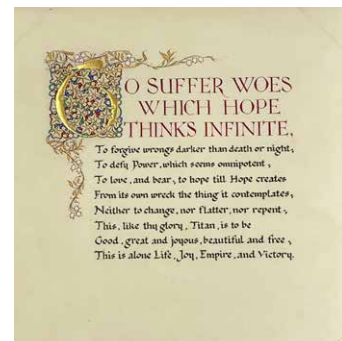 TO SUFFER WOES
WHICH HOPE
THINKS INFINITE,
To forgive wrongs darker than death or night;
To defy Power, which seems omnipotent;
To love, and bear; to hope till Hope creates
From its own wreck the thing it contemplates;
Neither to change, nor flatter, nor repent;
This, like thy glory, Titan, is to be
Good, great and joyous, beautiful and free;
This is alone Life, Joy, Empire, and Victory.